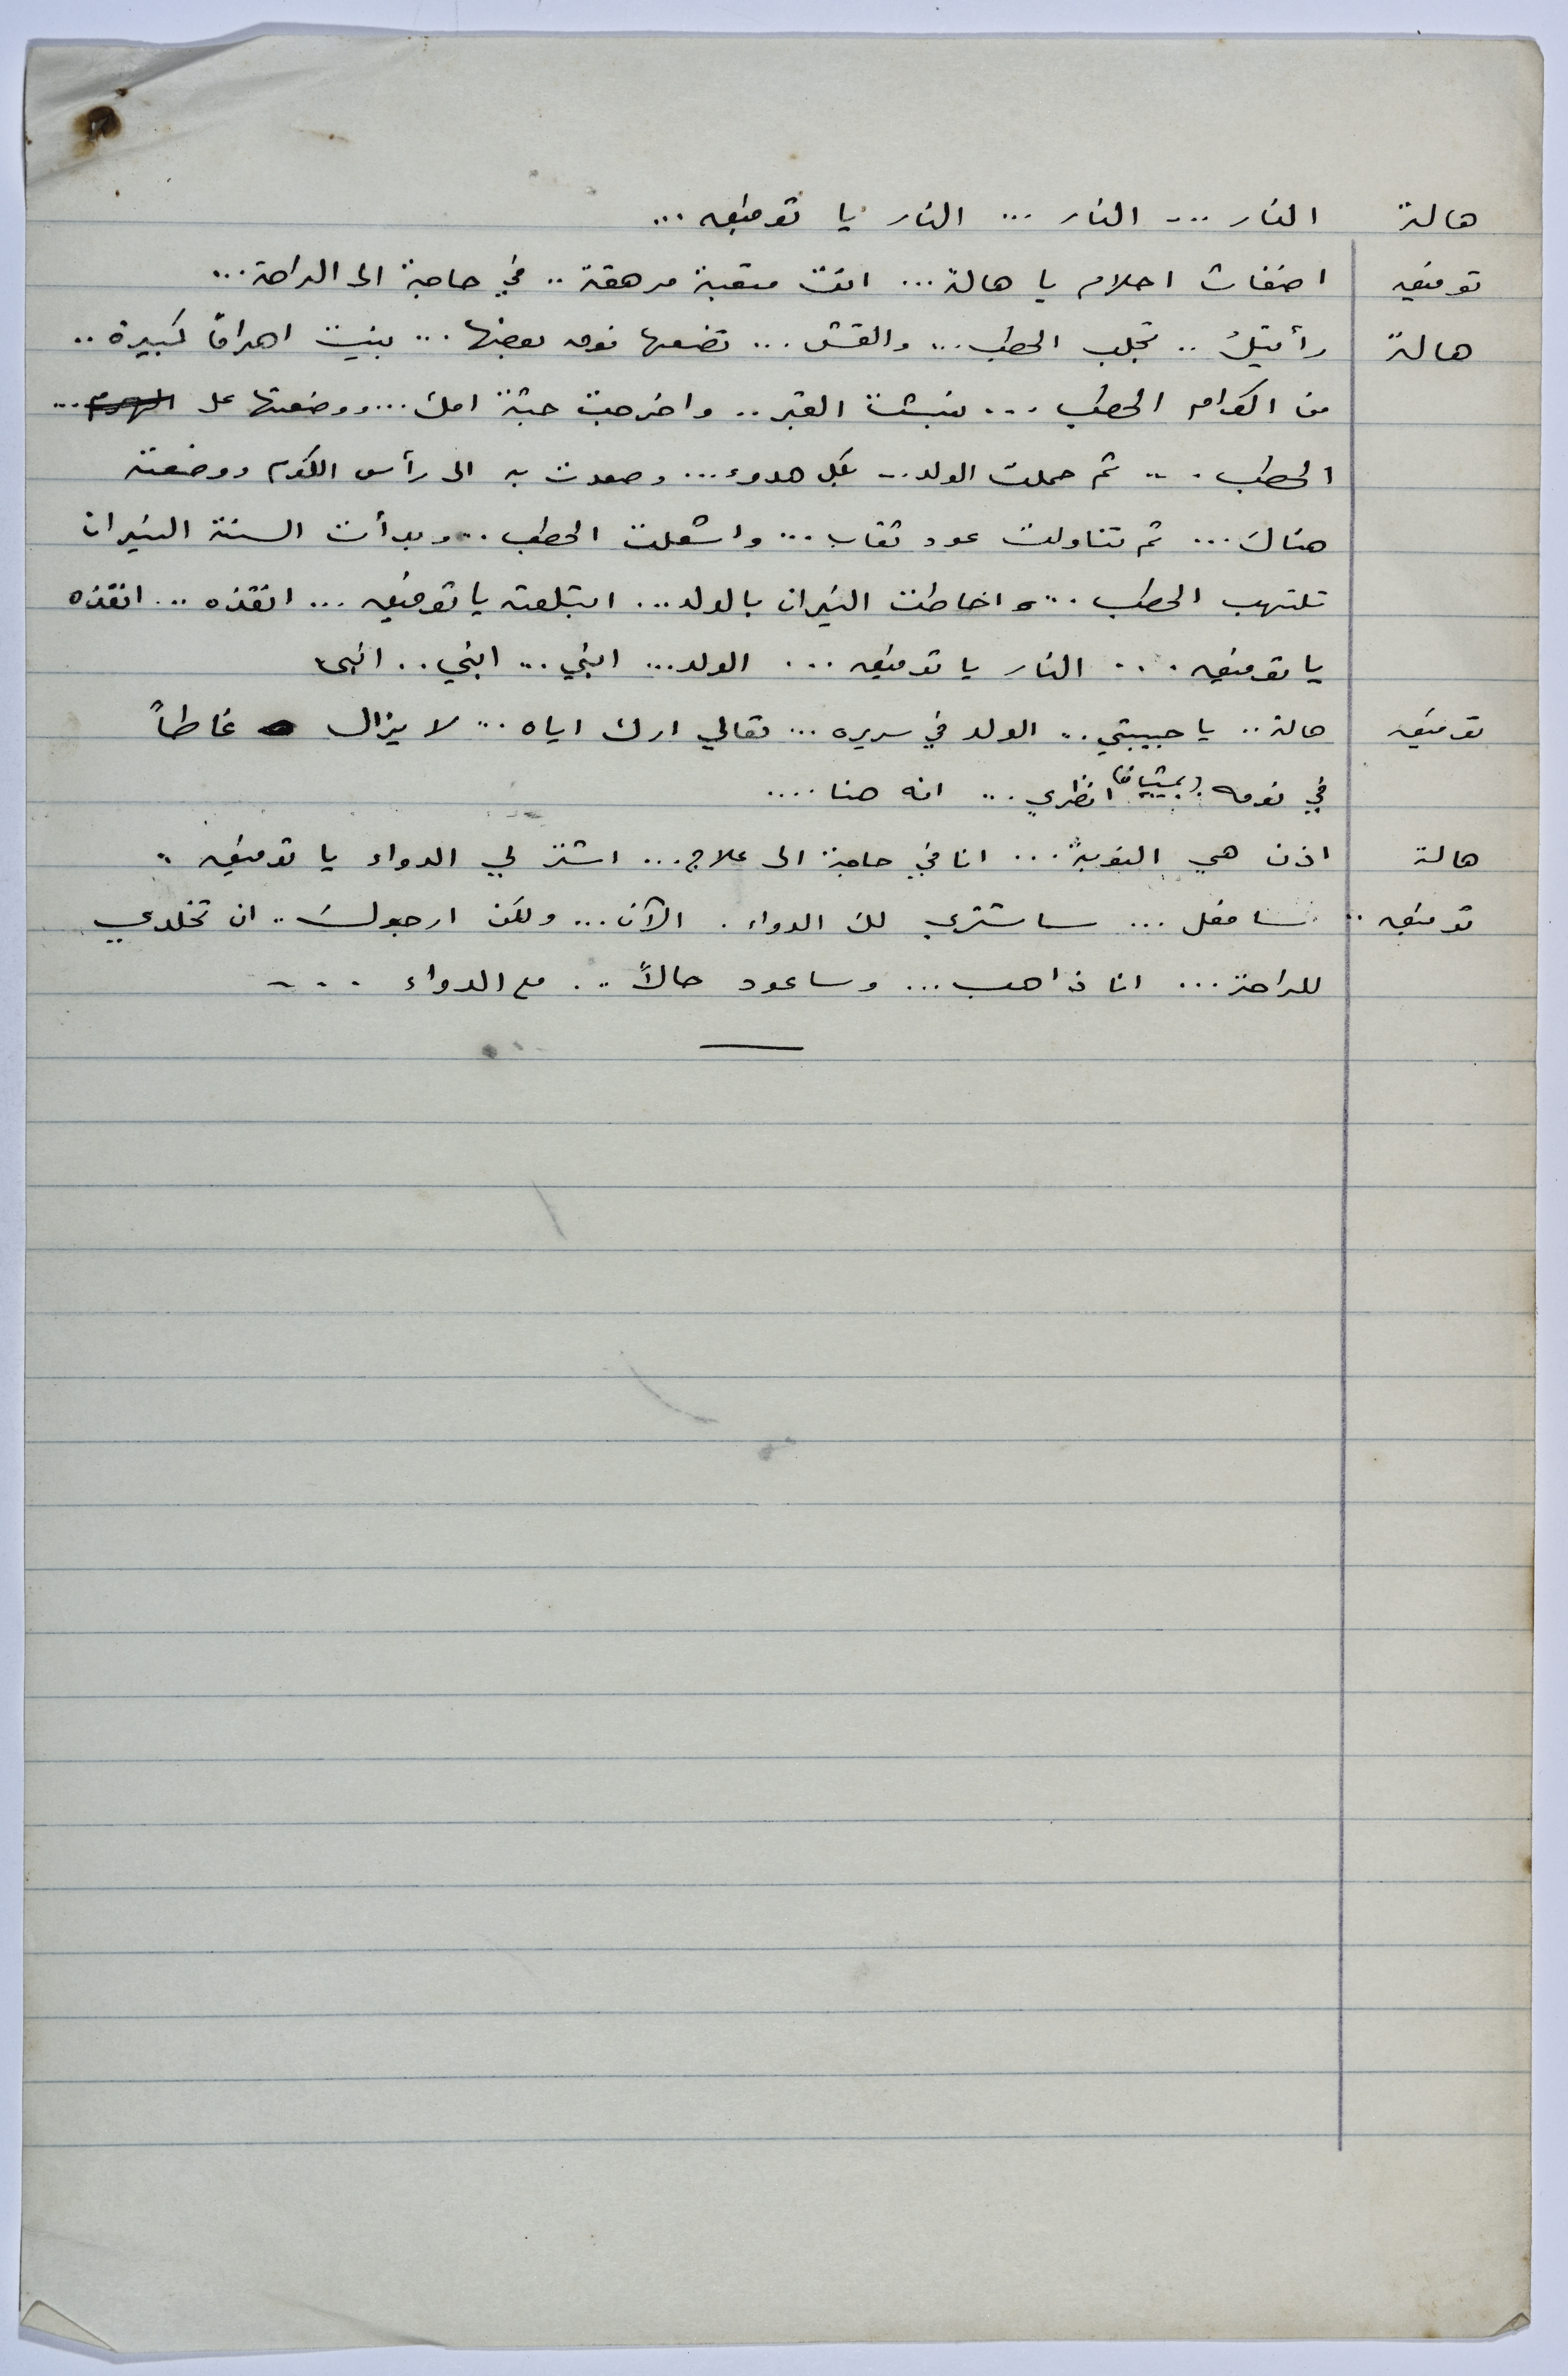 هالة النار ... النار ... النار يا توفيق ...
توفيق اضغاث احلام يا هالة ... انت متعبة مرهقة .. في حاجة الى الراحة ...
هالة رأيتكَ .. تجلب الحطب ... والقش ... تضعها فوق بعضها ... بنيت اهراماً كبيرة ..
من اكوام الحطب ... نبشت القبر .. واخرجت جثة امك ... ووضعتها على الهرم ...
الحطب ... ثم حملت الولد .. بكل هدوء ... وصعدت به الى رأس الكوم ووضعته
هناك ... ثم تناولت عود ثقاب ... واشعلت الحطب .. وبدأت السنة النيران
تلتهب الحطب ... واحاطت النيران بالولد ... ابتلعته يا توفيق ... انقذه ... انقذه
يا توفيق ... النار يا توفيق ... الولد ... ابني ... ابني ..
توفيق هالة .. يا حبيبتي .. الولد في سريره ... تعالي ارك اياه .. لا يزال غاطاً
في نومه . انظري ... انه هنا ....
هالة اذن هي النوبةُ ... انا في حاجة الى علاج ... اشتر لي الدواء يا توفيق ..
توفيق .. سافعل ... ساشتري لك الدواء . الآن ... ولكن ارجوك .. ان تخلدي
للراحة ... انا ذاهب ... وساعود حالاً .. مع الدواء ...